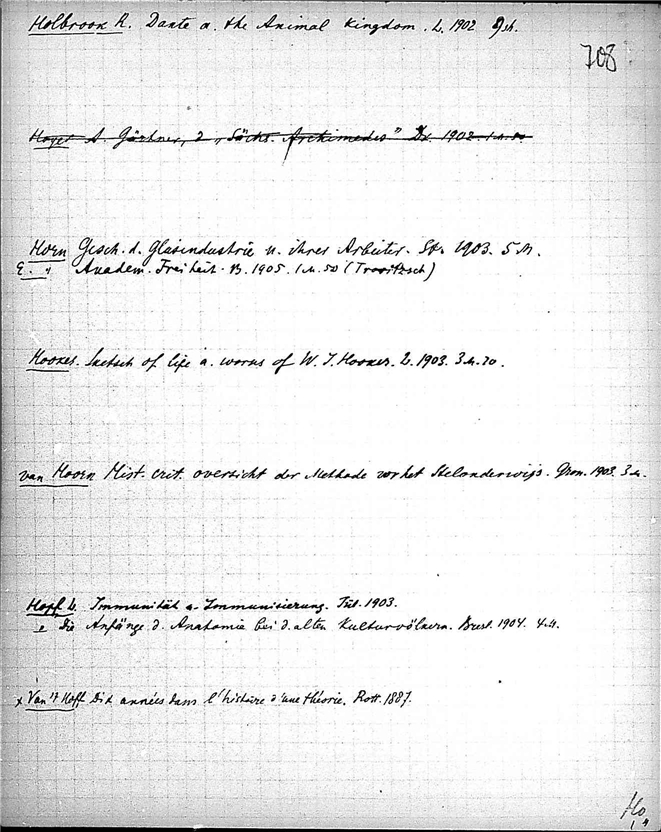 Holbrook R. Dante a. the Animal Kingdom. L. 1902 9 sh.
708
Hoyer A. Gärtner, d „Sächs. Archimedes" Dr. 1902. 1 M. 80
Horn Gesch. d. Glasindustrie u. ihrer Arbeiter. St. 1903. 5 M.
E. " Akadem. Freiheit. B. 1905. 1 M. 50 (Trowitzsch)
Hooker. Sketch of life a. works of W. J. Hooker. L. 1903. 3 M. 20.
van Hoorn Hist. crit. overzicht der Methode het Gron. 1903. 3 M.
Hopf L. Immunität u. Immunisierung. Tüb. 1903.
" Die Anfänge d. Anatomie bei d. alten Kulturvölkern. Bresl. 1904. 4 M.
x Van't Hoff Dix années dans l'histoire d'une théorie. Rott. 1887.
Ho